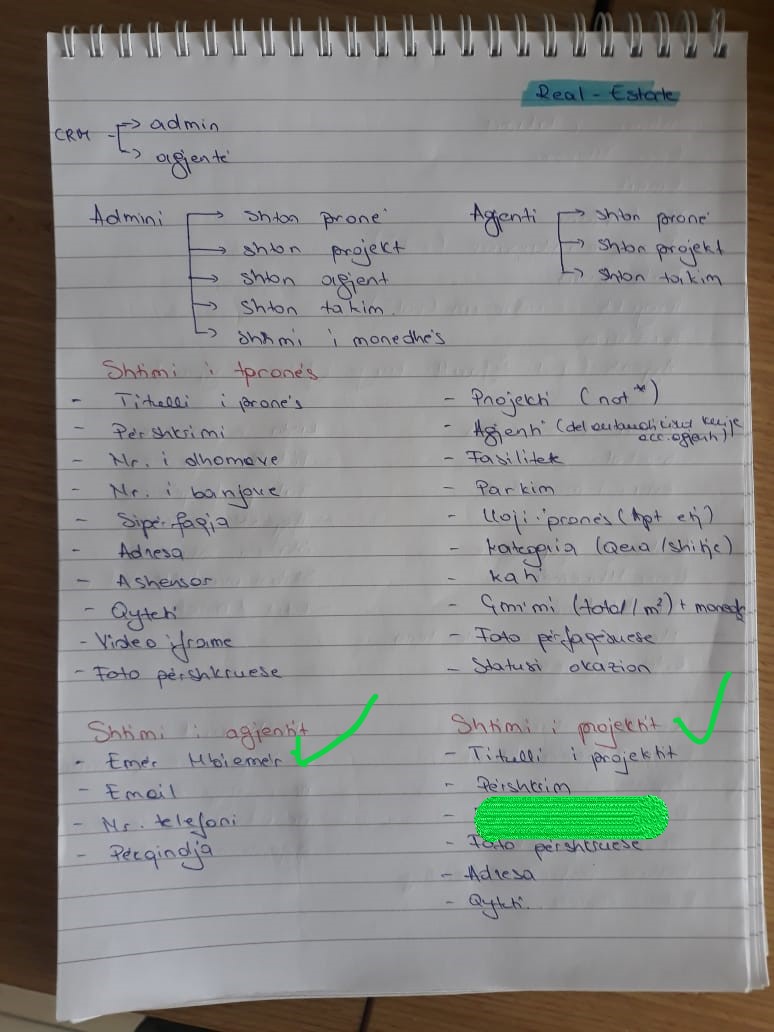 Real-Estate
CRM → admin
→ agjentë
Admini → shton pronë
→ shton projekt
→ shton agjent
→ shton takim
→ shtimi i monedhës
Agjenti → shton pronë
→ shton projekt
→ shton takim
Shtimi i pronës
- Titulli i pronës
- Përshkrimi
- Nr. i dhomave
- Nr. i banjove
- Sipërfaqja
- Adresa
- Ashensor
- Qyteti
- Video iframe
- Foto përshkruese
- Projekti (not*)
- Agjenti (del automatikisht
acc. agjenti)
- Fasilitet
- Parkim
- Lloji pronës (Apt etj)
- Kategoria (Qera/shitje)
- Kati
- Çmimi (total/m²) + monedhë
- Foto përfaqësuese
- Statusi okazion
Shtimi i agjentit
- Emër Mbiemër
- Email
- Nr. telefoni
- Përqindja
Shtimi i projektit
- Titulli i projektit
- Përshkrim
-
- Foto përshkruese
- Adresa
- Qyteti.